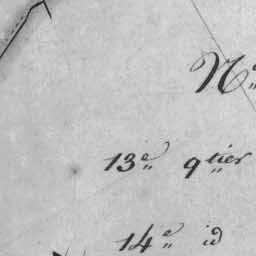 N.º
13.e q.tier
14.e id